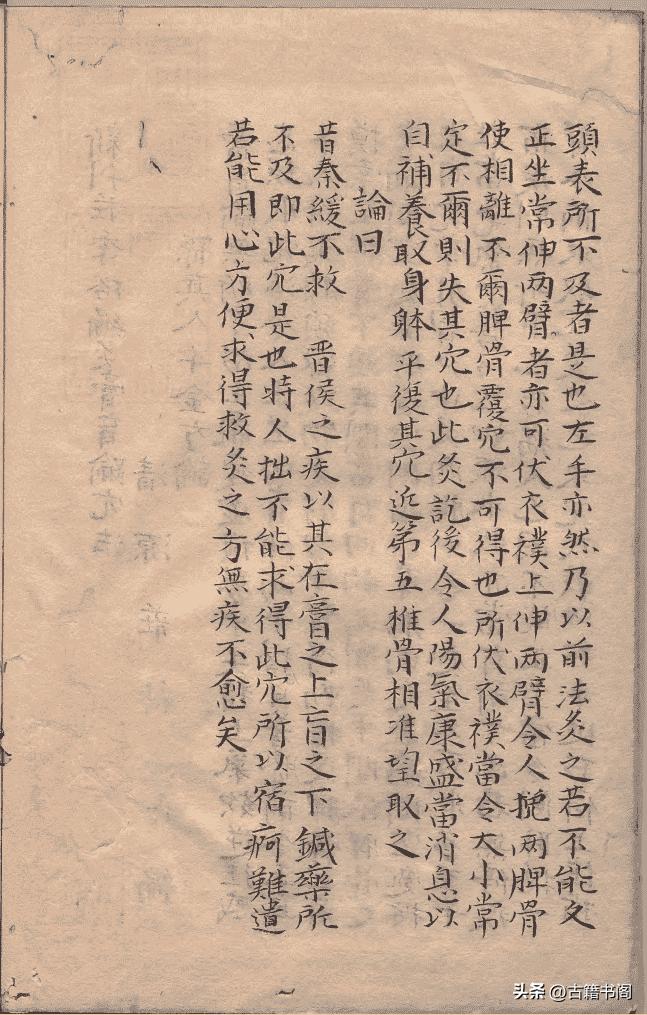 頭表所不及者是也左手亦然乃以前法灸之若不能久
正坐常伸两臂者亦可伏衣襆上伸两臂令人挽两胛骨
使相離不爾胛骨覆穴不可得也所伏衣襆當令大小常
定不爾則失其穴也此灸訖後令人陽氣康盛當消息以
自補養取身躰平復其穴近第五椎骨相准望取之
論曰
昔秦緩不救晋侯之疾以其在膏之上肓之下鍼藥所
不及即此穴是也時人拙不能求得此穴所以宿痾難遣
若能用心方便求得救灸之方無疾不愈矣
头条 @古籍书阁